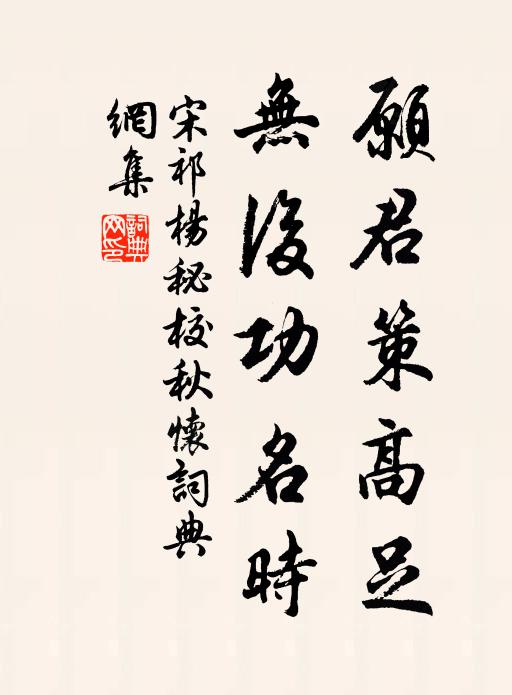 願君策高足
無後功名時
宋祁楊秘校秋懷詞典
網集
詞典
网印